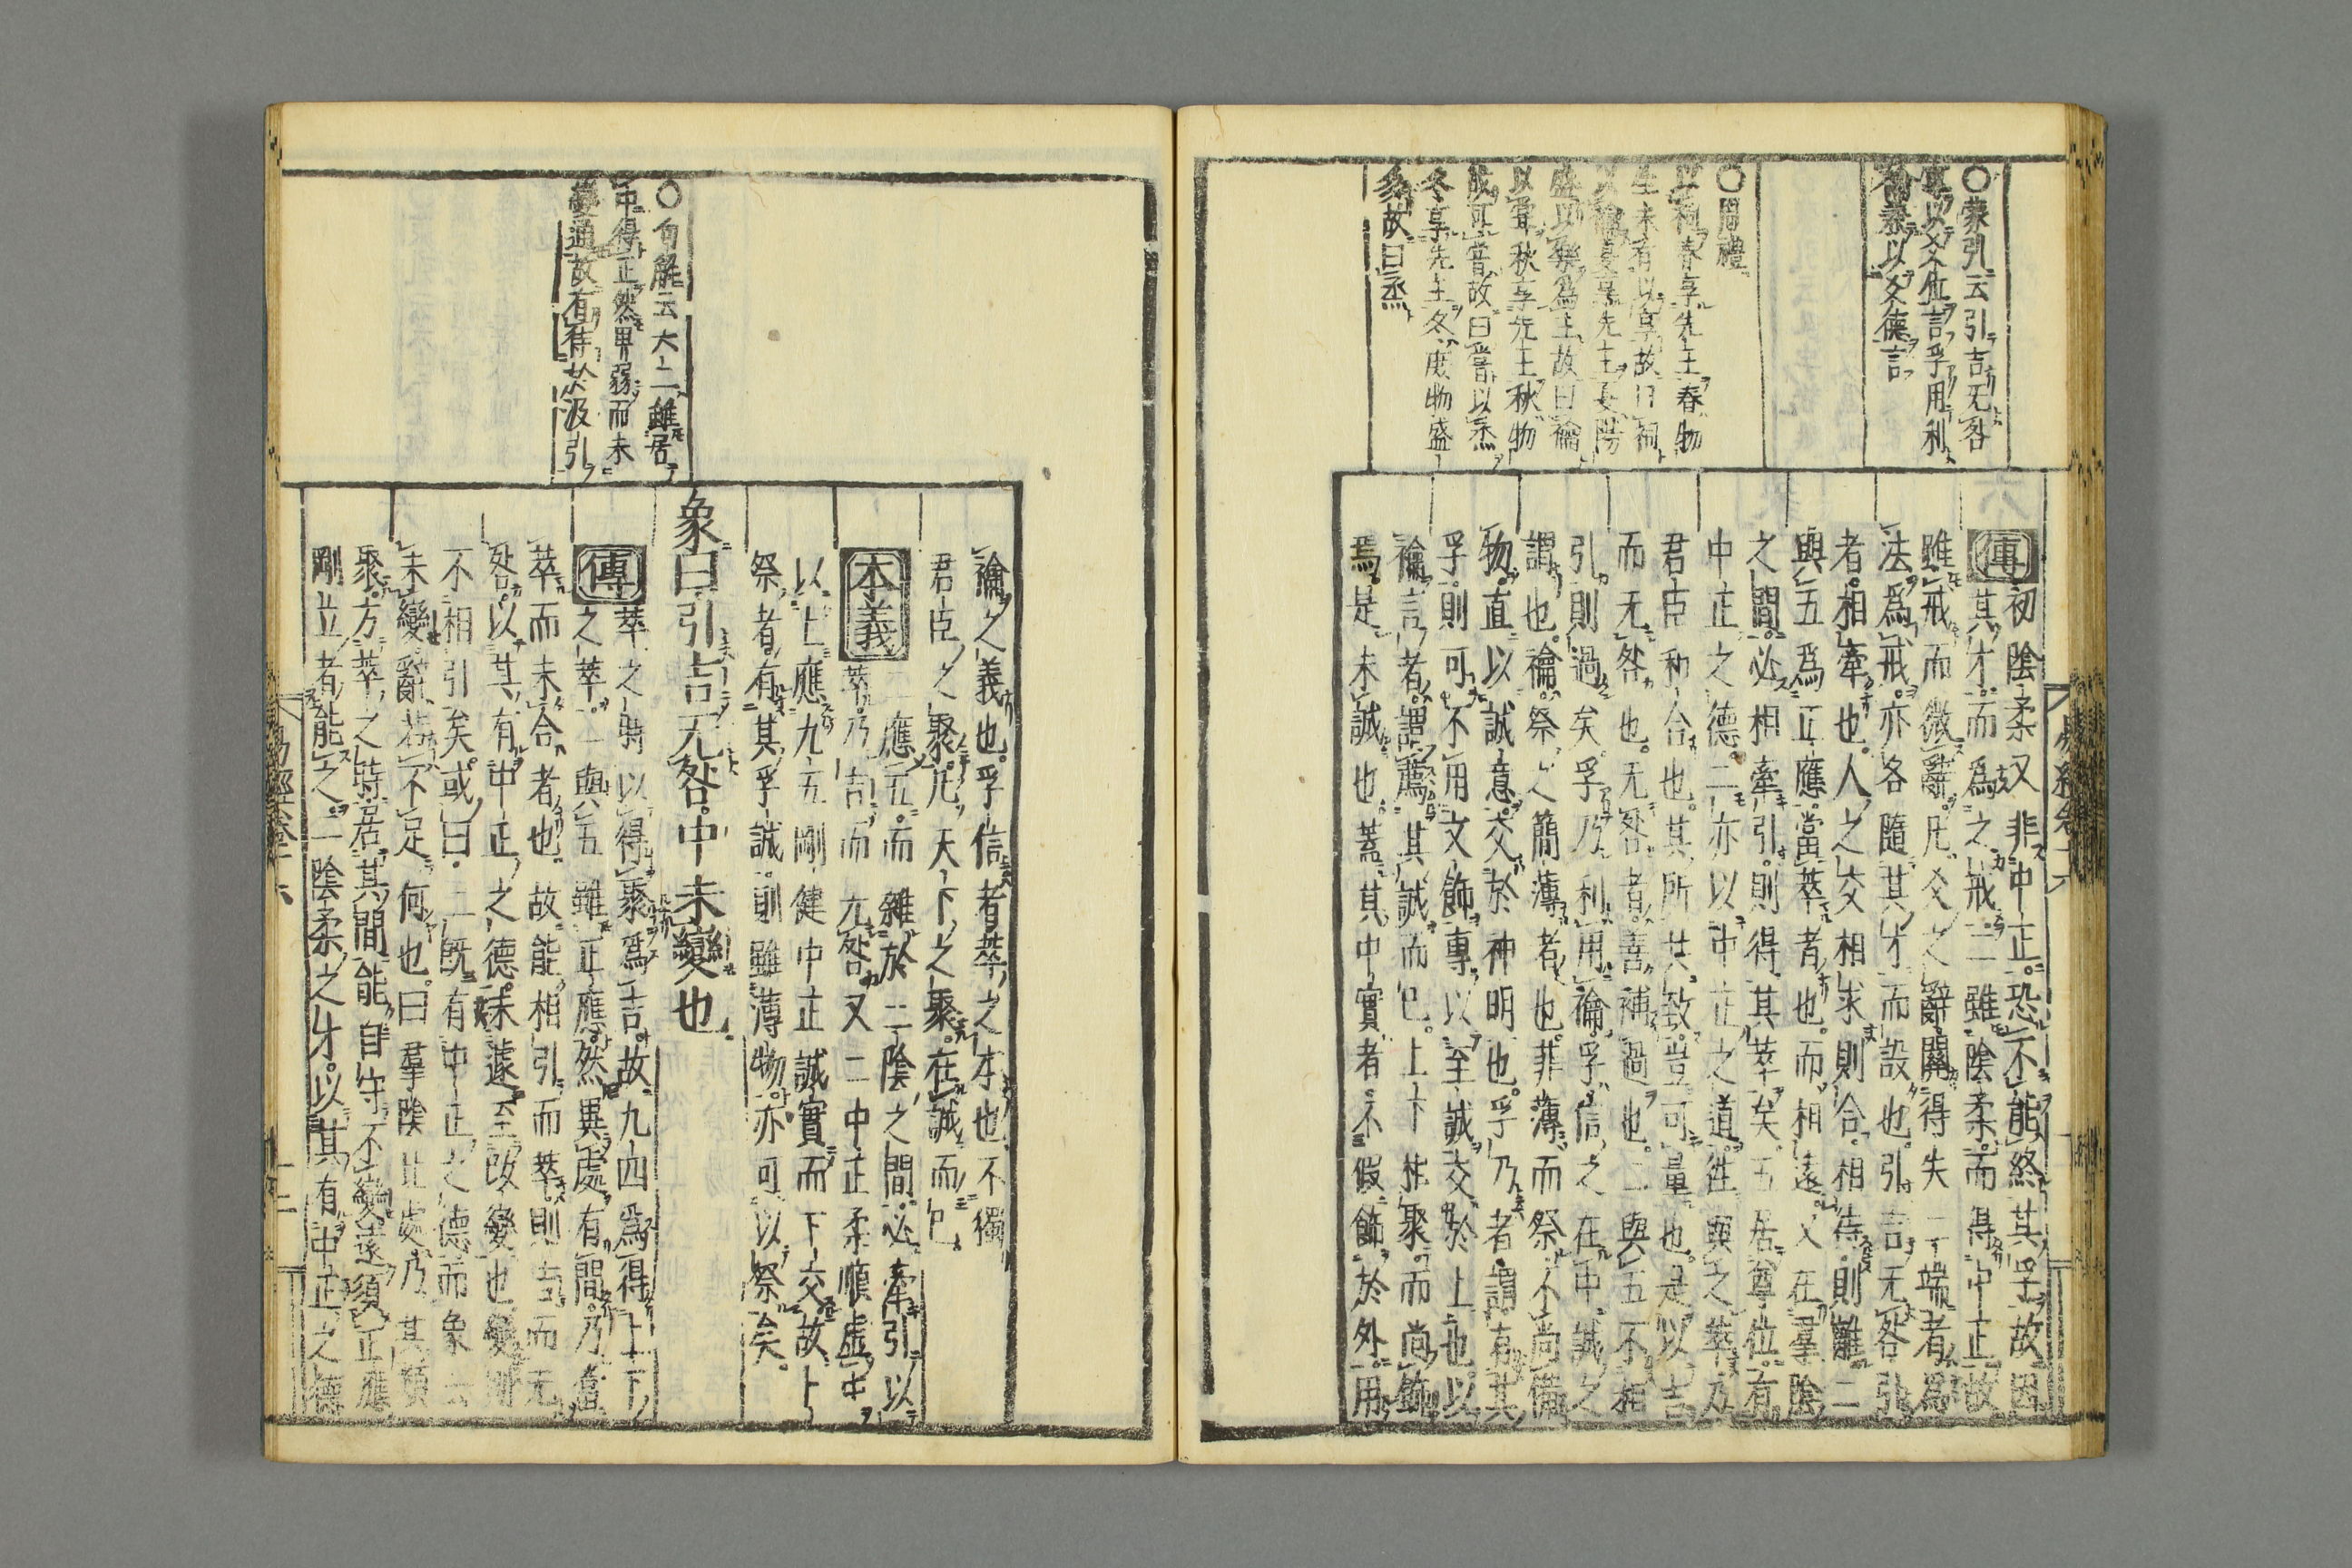 〇蒙引云引吉无咎
以爻位言孚用利
禴義以爻德言
〇周禮
以祠春享先王春物
生未有以享故曰祠
以禴夏享先王夏陽
盛以樂為主故曰禴
以嘗秋享先王秋物
成可嘗故曰嘗以烝
冬享先王冬庶物盛
多故曰烝
傳初陰柔又非中正恐不能終其孚故因
其才而為之戒二雖陰柔而得中正故
雖戒而微辭凡爻之辭關得失二端者為
法為戒亦各隨其才而設也引吉无咎引
者相牽也人之交相求則合相待則離二
與五為正應當萃者也而相遠又在羣陰
之間必相牽引則得其萃矣五居尊位有
中正之德二亦以中正之道往與之萃乃
君臣和合也其所共致豈可量也是以吉
而无咎也无咎者善補過也二與五不相
引則過矣孚乃利用禴孚信之在中誠之
謂也禴祭之簡薄者也菲薄而祭不尚備
物直以誠意交於神明也孚乃者謂有其
孚則可不用文飾專以至誠交於上也以
禴言者謂薦其誠而已上下相聚而尚飾
焉是未誠也蓋其中實者不假飾於外用
易經卷十六
〇句解云六二雖居
中得正然畀弱而未
變通故有待於汲引
禴之義也孚信者萃之本也不獨
君臣之聚凡天下之聚在誠而已
本義二應五而雜於二陰之間必牽引以
萃乃吉而无咎又二中正柔順虛中
以上應九五剛健中正誠實而下交故卜
祭者有其孚誠則雖薄物亦可以祭矣
象曰引吉无咎中未變也
傳萃之時以得聚為吉故九四為得上下
之萃二與五雖正應然異處有間乃當
萃而未合者也故能相引而萃則吉而无
咎以其有中正之德未遽至改變也變則
不相引矣或曰二既有中正之德而象云
未變辭若不足何也曰羣陰比處乃其類
聚方萃之時居其間能自守不變遠須正應
剛立者能之二陰柔之才以其有中正之德
易經卷十六
十二